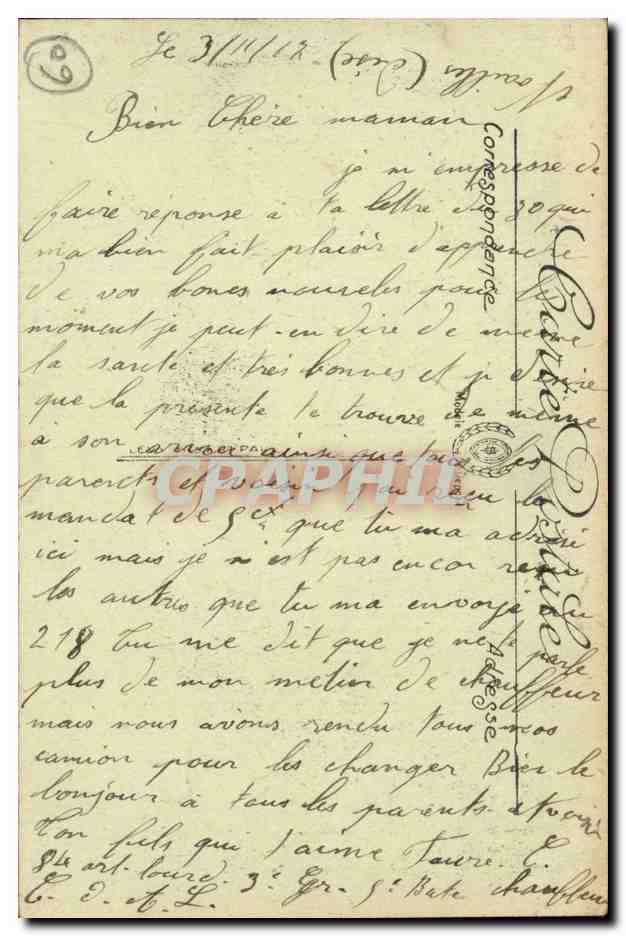 60
Noailles (Oise) Le 3/11/17
Bien Chère maman
je m'empresse de
faire réponse à ta lettre du 30 qui
ma bien fait plaisir d'apprendre
de vos bones nouveles pour le
moment je peut-en dire de meme
la santé et très bonnes et je désire
que la présente te trouve de même
à son arrivé ainsi que tous les
parents et voisins j'ai reçu le
mandat de 5 que tu ma adresé
ici mais je n'est pas encor reçu
les autres que tu ma envoyé au
218 tu me dit que je ne te parle
plus de mon métier de chauffeur
mais nous avons rendu tous nos
camion pour les changer Bien le
bonjour à tous les parents et voisin
Ton fils qui t'aime Faure. E.
84 art. lourd. 3e Gr. 5e Bate chauffeur
A. L.
Carte Postale
Correspondance
Adresse
CPARAMA